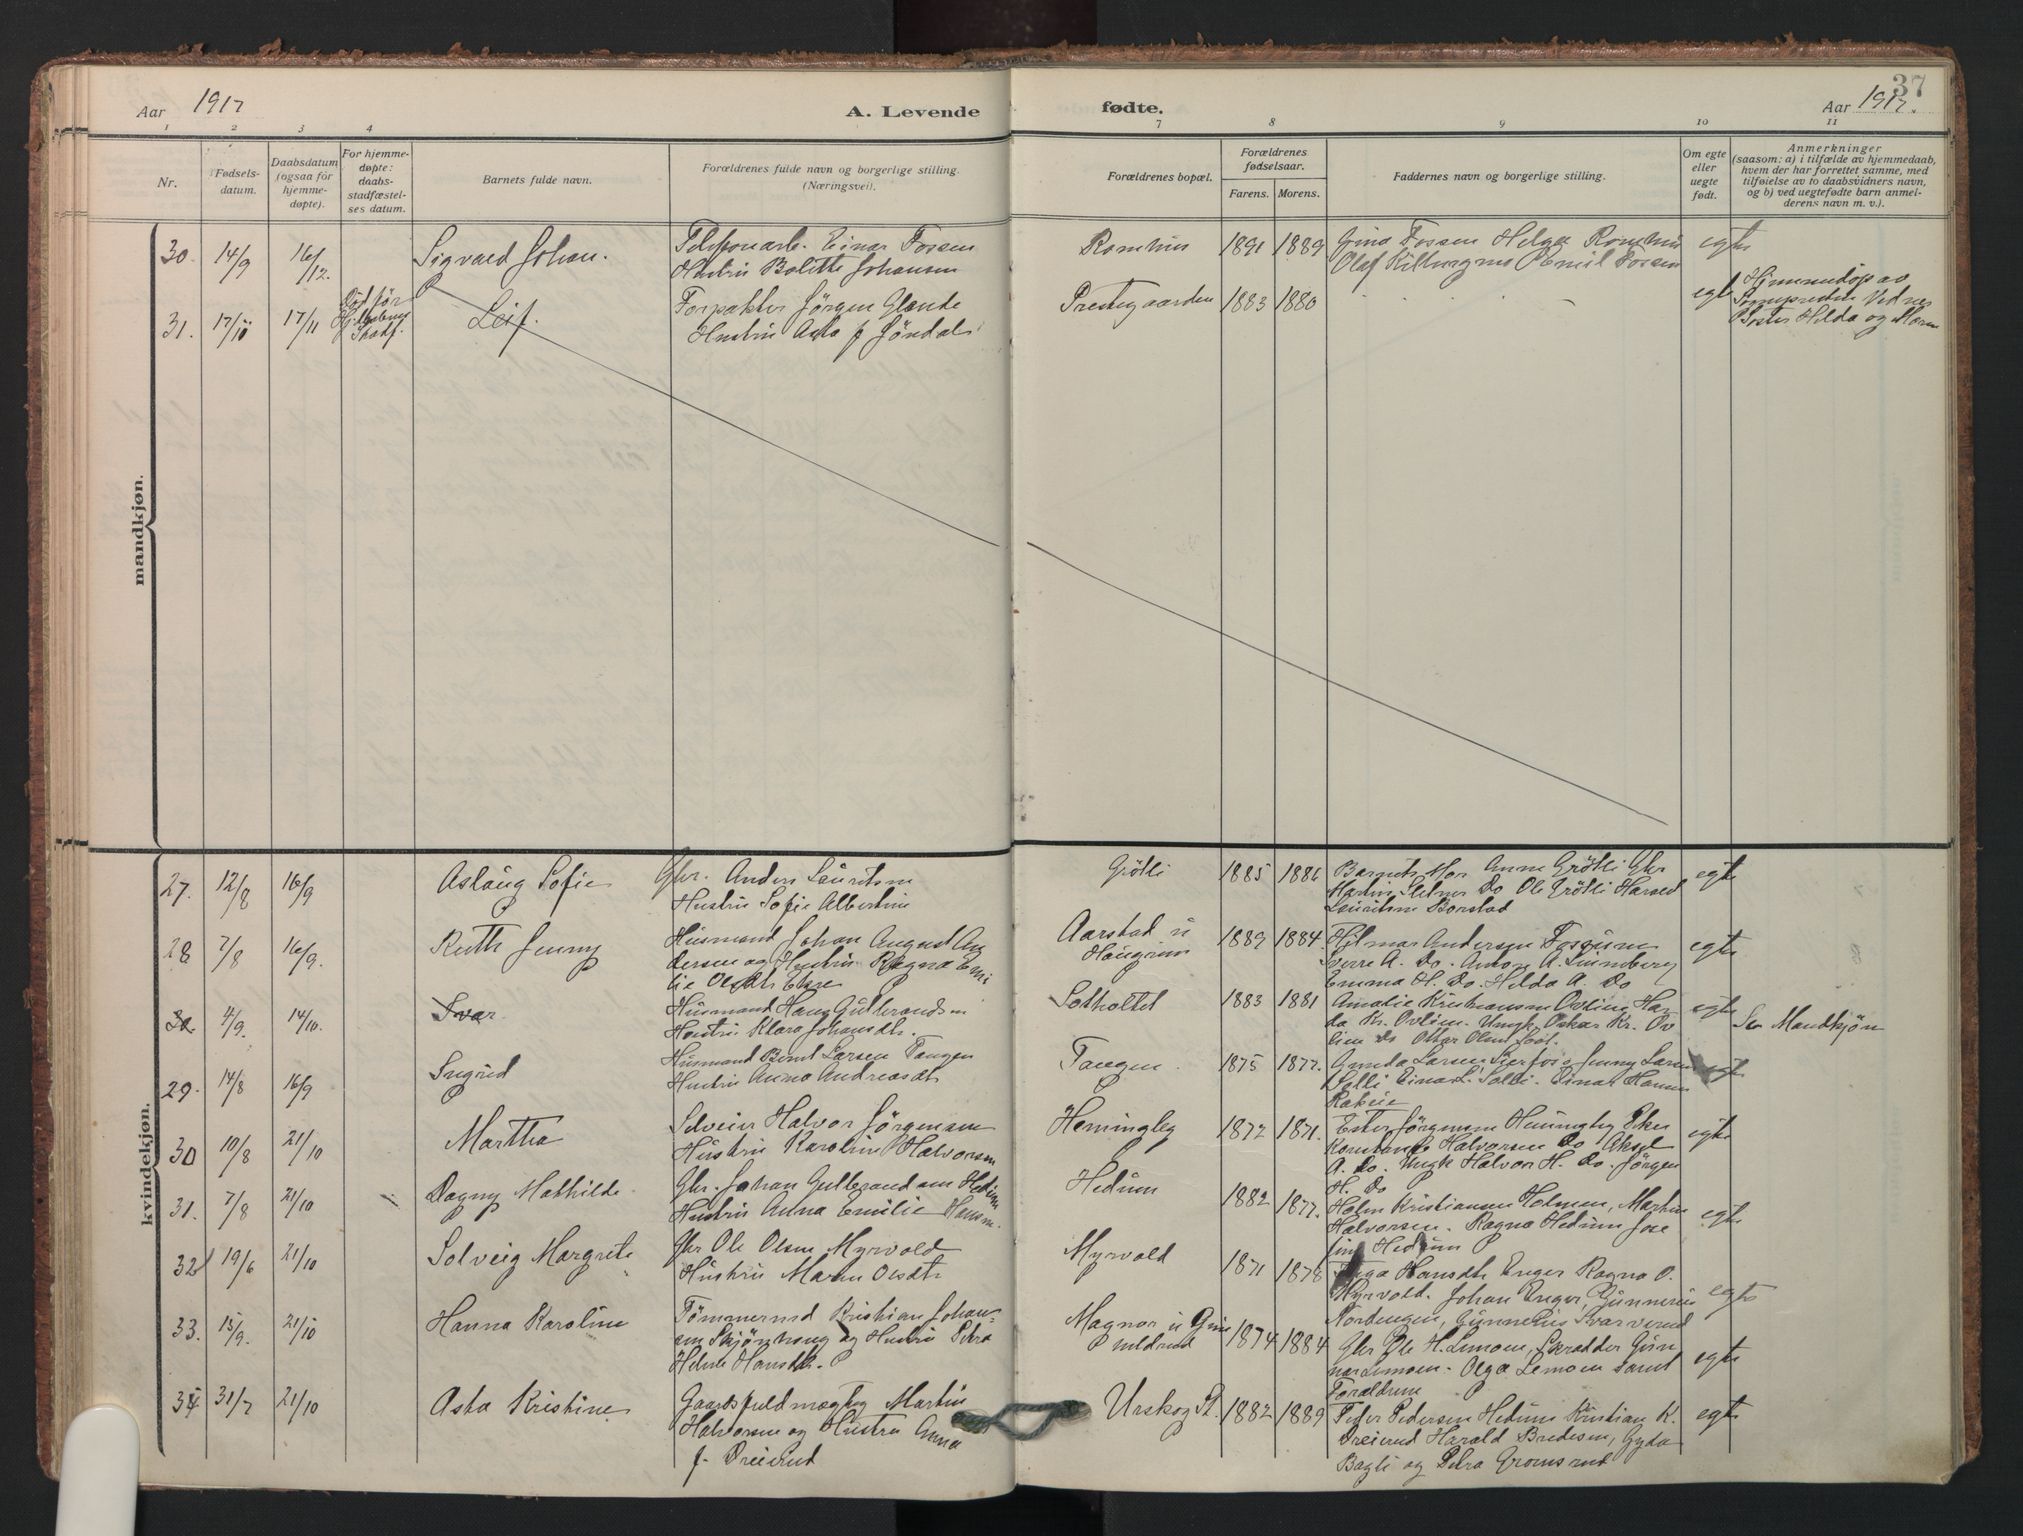 Aar 1917
A. Levende
fødte.
37
Aar 1917.
1 2 3 4
7 8 9 10 11
Nr.
Fødsels-
datum.
Daabsdatum
(ogsaa for
hjemme-
døpte).
For hjemme-
døpte:
daabs-
stadfæstel-
ses datum.
Barnets fulde navn.
Forældrenes fulde navn og borgerlige stilling.
(Næringsvei).
Forældrenes bopæl.
Forældrenes
fødselsaar.
Farens. Morens.
Faddernes navn og borgerlige stilling.
Om egte
eller
uegte
født.
Anmerkninger
(saasom: a) i tilfælde av hjemmedaab,
hvem der har forrettet samme, med
tilføielse av to daabsvidners navn,
og b) ved uegtefødte barn anmel-
derens navn m. v.).
mandkjøn.
30. 14/9 16/12. Sigvald Johan. Telefonarb. Einar Fossen
Hustru Bolette Johansen
Romhus 1891 1889 Gina Fossen Helga Romhus
Olaf Emil Fossen
egte
31. 17/10 17/11 Død før
Stadf.
Leif. Forpakter Jørgen Glende
Hustru Asta f. Jøndal
Prestegaarden 1883 1880
egte Hjemmedøpt av
Sogneprest Vidner
Søster Hilda og Maren
kvindekjøn.
27. 12/8 16/9 Aslaug Sofie Gbr. Anders Lauritsen
Hustru Sofie Albertine
Grøtli 1885 1886 Barnets Mor Anne Grøtli Gbr
Martin Do Ole Grøtli Harald
Lauritsen Borstad
egte
28 7/8 16/9. Ruth Jenny Husmand Johan August An
dersen og Hustru Ragna Emi
lie Olsdt.
Aarstad u
Haugrim
1889 1884. Hilmar Andersen
Sverre A. Do. Anton A.
Emma H. Do. Hilda A. Do
egte
30. 4/9. 14/10. Svar. Husmand Hans Gulbrandsen
Hustru Klara Johansdt.
Sotholtet 1883 1881 Amalie Kristiansen Ovlien Har
da Kr. Ovlien. Ungk. Oskar Kr. Ov
lien Do Ottar Olsen
egte Se Mandkjøn
29. 14/8 16/9 Ingrid Husmand Bernt Larsen Tangen
Hustru Anna Andreasdt
Tangen. 1875 1877. Larsen Jenny Larsen
Einar Einar Hansen
egte
30 10/8 21/10 Martha Selveier Halvor Jørgensen
Hustru Karoline Halvorsen
Hemingby 1872 1871. Ester Jørgensen Hemingby
Halvorsen Do Aksel
A. Do. Ungk Halvor H. Do. Jørgen
H. Do
egte
31. 7/8 21/10 Dagny Mathilde. Gbr. Johan Gulbrandsen Hedum
Hustru Anna Emilie Hansen.
Hedum 1882 1877. Kristiansen Holmen, Martin
Halvorsen. Ragna Hedum Jose
fine Hedum
egte
32 19/6 21/10 Solveig Margrete Gbr Ole Olsen Myrvold
Hustru Maren Olsdt
Myrvold 1871 1878 Hansdt. Enger Ragna O.
Myrvold. Johan Enger, Gunnerius
Nordengen, Gunnerius
egte
33. 13/9. 21/10 Hanna Karoline Tømmermd Kristian Johan-
sen Skjønhaug og Hustru Petra
Helene Hansdt.
Magnor u Gun
nildrud
1874 1884 Gbr Ole H. Lemoen, Skrædder Gun
nar Lemoen. Olga Lemoen samt
Forældrene
egte
34 31/7 21/10 Asta Kristine Gaardsfuldmægtig Martin
Halvorsen og Hustru Anna
f. Dreierud
Urskog St. 1882 1889 Peder Pedersen Hedum Kristian K.
Dreierud Harald Bredesen, Gyda
Bagli og Petra Gromsrud
egte